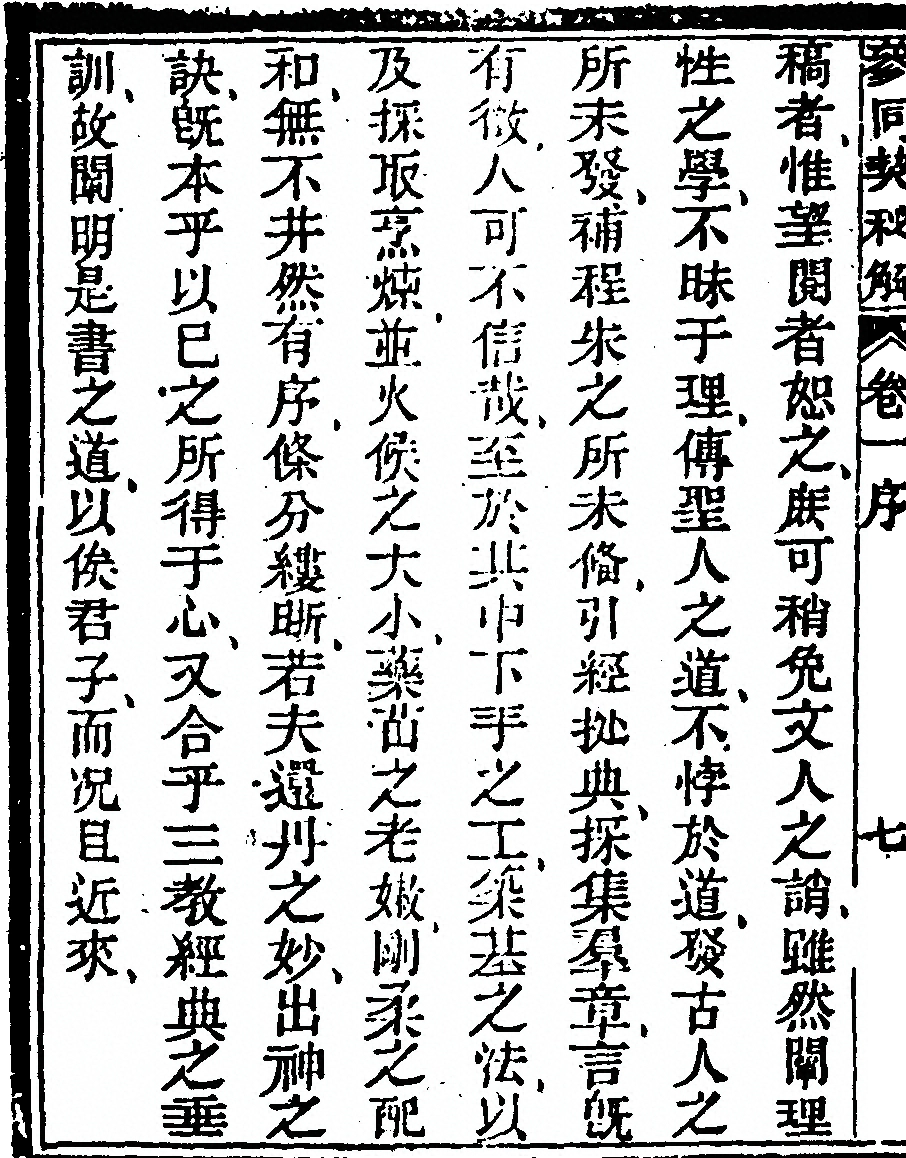 參同契秘解 卷一序 七
稿者、惟望閱者恕之、庶可稍免文人之誚、雖然闡理
性之學、不昧于理、傳聖人之道、不悖於道、發古人之
所未發、補程朱之所未備、引經批典、探集羣章、言既
有徵、人可不信哉、至於其中下手之工、築基之法、以
及採取烹煉、並火候之大小、藥苗之老嫩、剛柔之配
和、無不井然有序、條分縷晰、若夫還丹之妙、出神之
訣、既本乎以巳之所得于心、又合乎三教經典之垂
訓、故闡明是書之道、以俟君子、而况且近來、